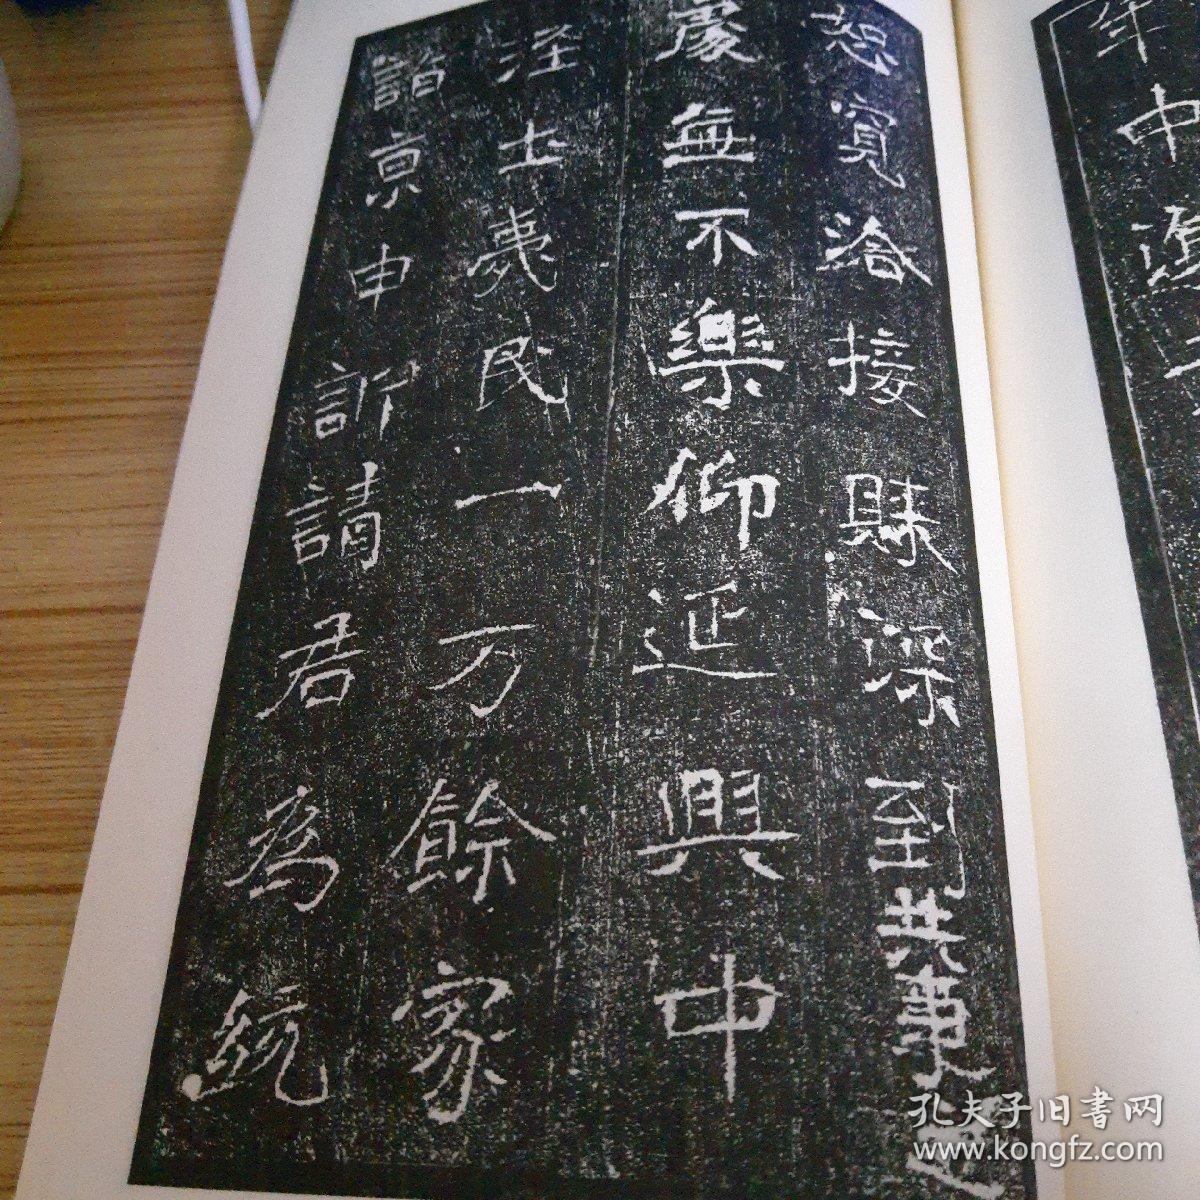 恕寬洽接賕深到共事之
處無不樂仰延興中
涇土夷民一万餘家
詣京申訴請君為統
年中
孔夫子旧書网
www.kongfz.com